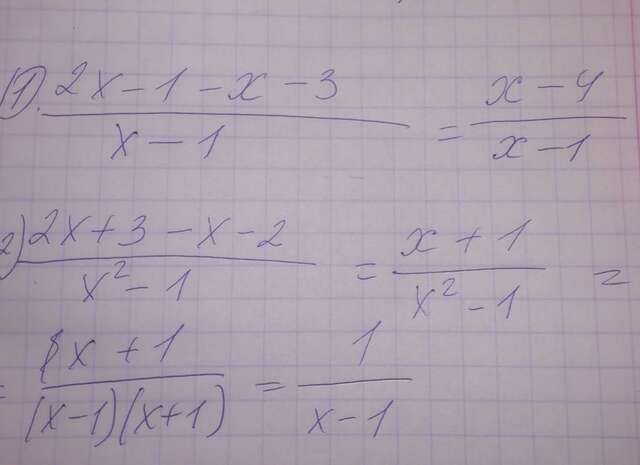 1) (2x-1-x-3)/(x-1) = (x-4)/(x-1)
2) (2x+3-x-2)/(x²-1) = (x+1)/(x²-1) =
= (x+1)/((x-1)(x+1)) = 1/(x-1)